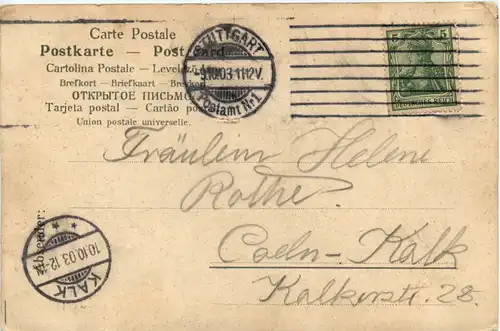 Carte Postale
Postkarte — Post Card
Cartolina Postale — Levelező
Brefkort — Briefkaart — Breskort
ОТКРЫТОЕ ПИСЬМО
Tarjeta postal — Cartão postal
Union postale universelle.
STUTTGART
9.10.03.11-12V.
Postamt No 1
5 5
DEUTSCHES REICH
Fräulein Helene
Rothe.
Coeln-Kalk
Kalkerstr. 28.
Absender:
10.10.03.12
KALK